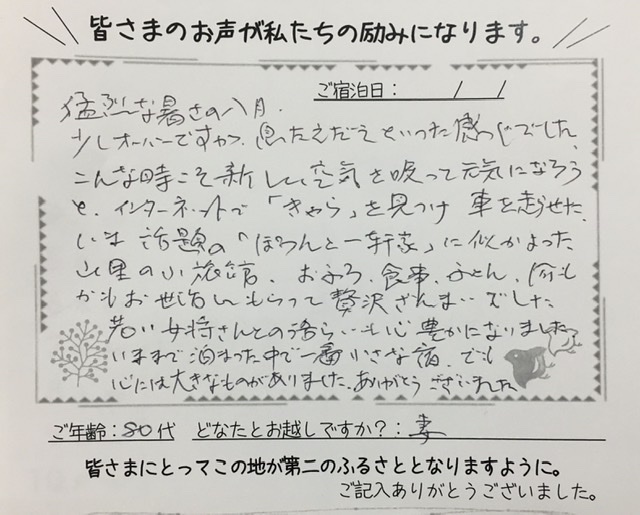 皆さまのお声が私たちの励みになります。
ご宿泊日: / /
猛烈な暑さの八月.
少しオーバーですが、息たえだえといった感じでした、
こんな時こそ新しい空気を吸って元気になろう
と、インターネットで「きゃら」を見つけ 車を走らせた、
いま話題の「ぽつんと一軒家」に似かよった
山里の小旅館、おふろ、食事、ふとん、何も
かもお世話してもらって贅沢ざんまいでした、
若い女将さんとの語らいも心豊かになりました
いままで泊まった中で一番小さな宿、でも
心には大きなものがありました、ありがとうございました
ご年齢: 80代 どなたとお越しですか?: 妻
皆さまにとってこの地が第二のふるさととなりますように。
ご記入ありがとうございました。